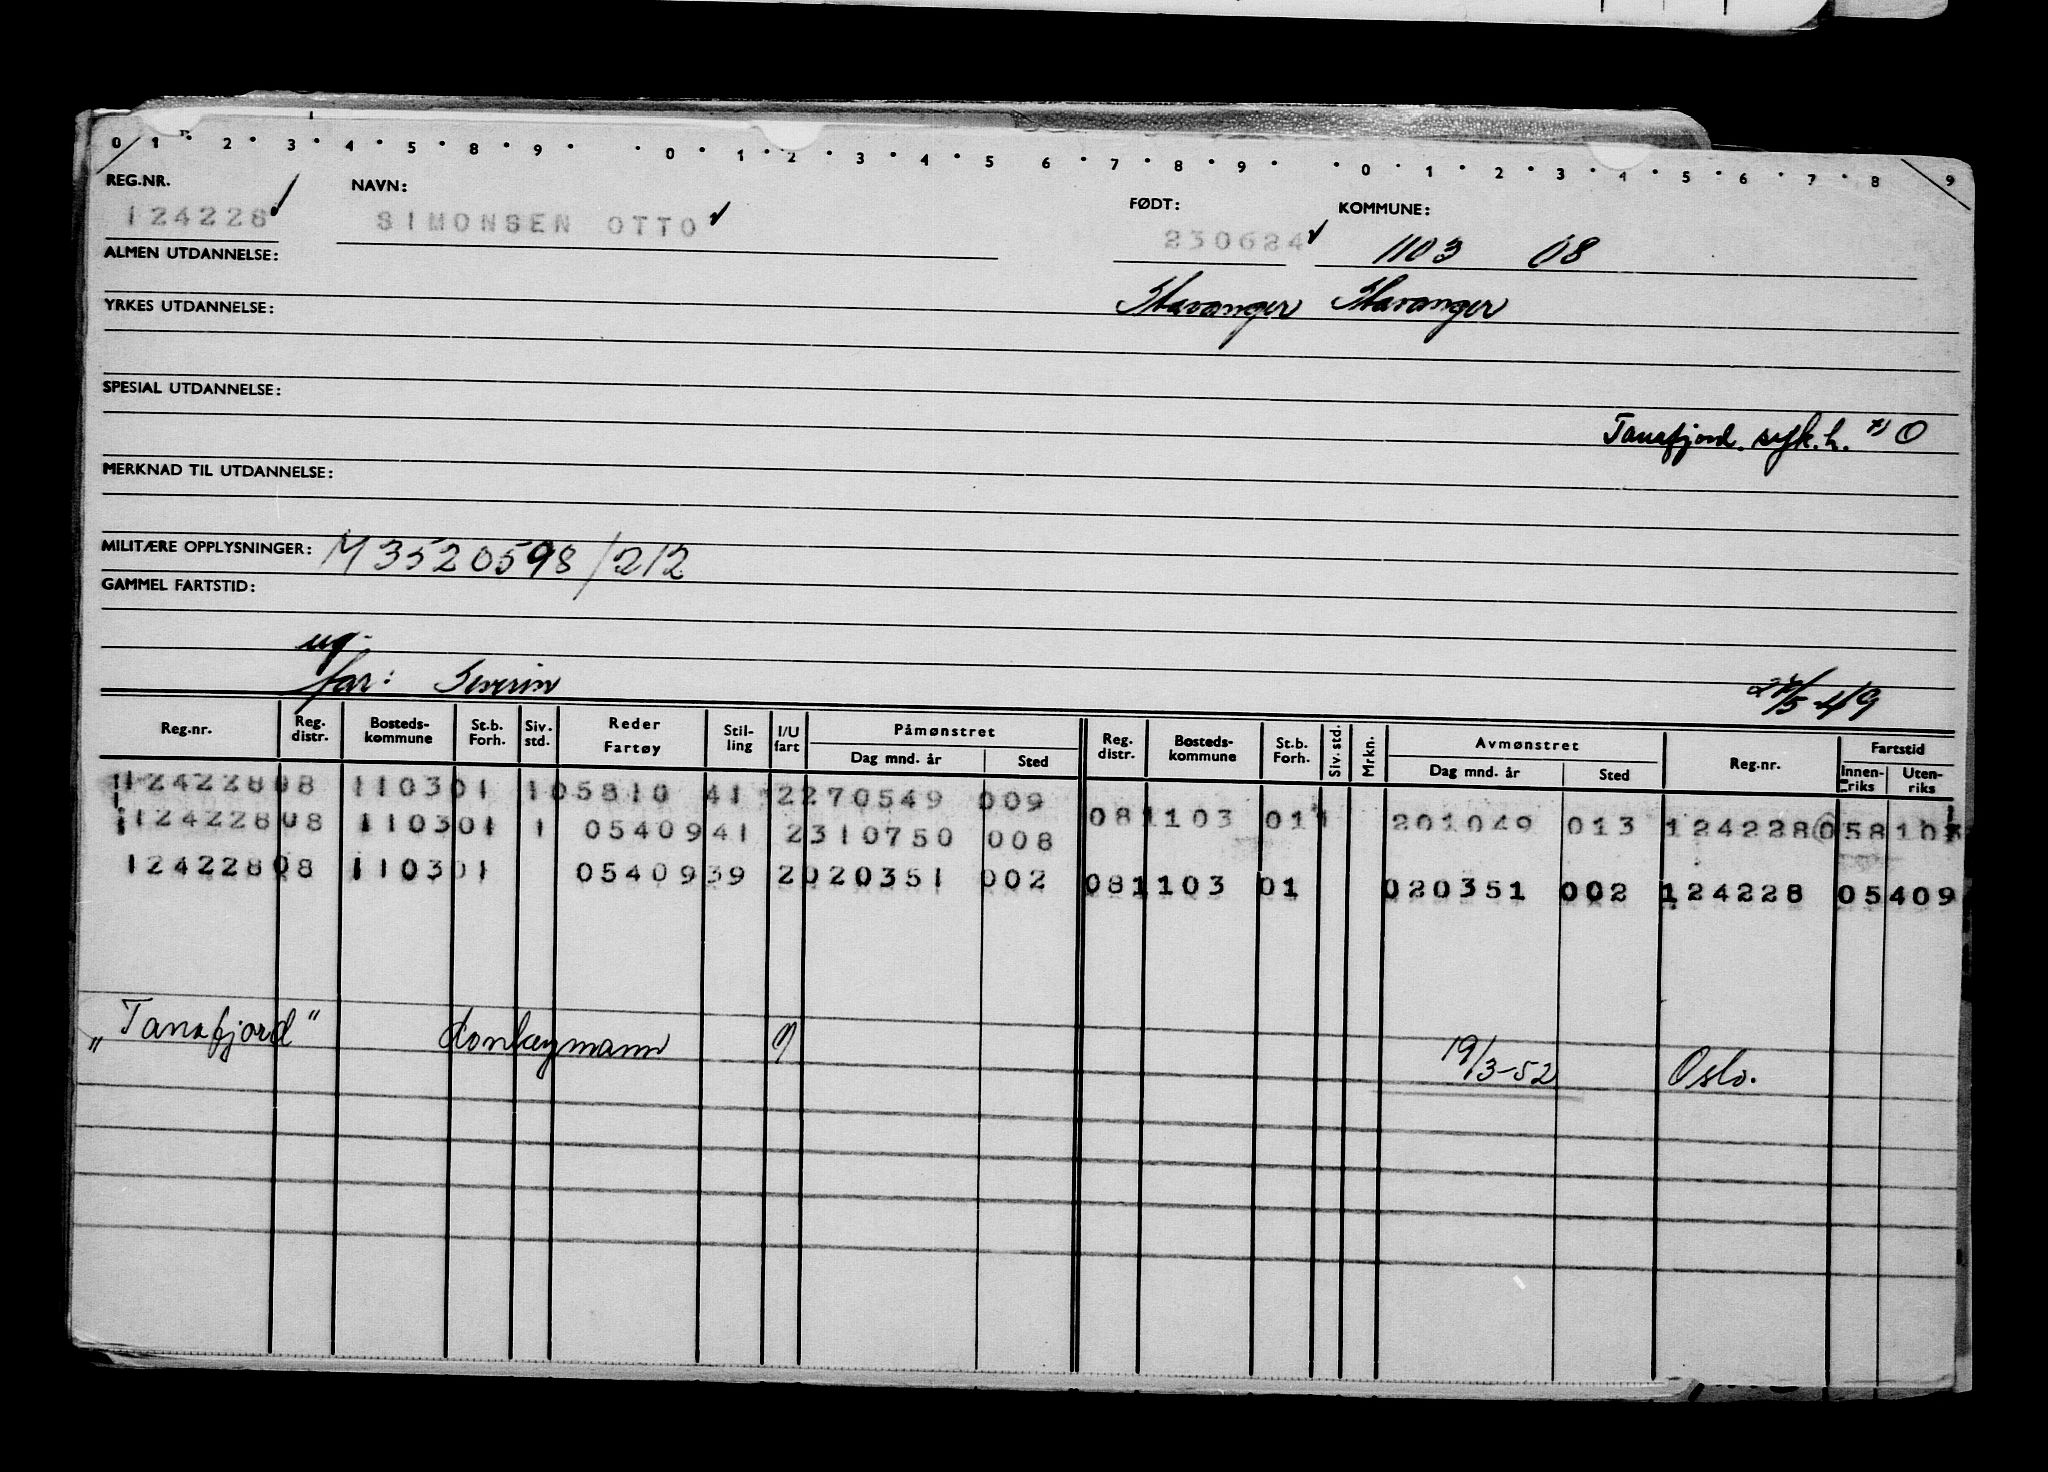 0 1 2 3 4 5 8 9 0 1 2 3 4 5 6 7 8 9 0 1 2 3 4 5 6 7 8 9
REG.NR. NAVN: FØDT: KOMMUNE:
124228 SIMONSEN OTTO 230624 1103 08
ALMEN UTDANNELSE:
YRKES UTDANNELSE: Stavanger Stavanger
SPESIAL UTDANNELSE:
Tanafjord. syk.h.
MERKNAD TIL UTDANNELSE:
MILITÆRE OPPLYSNINGER: M3520598/212
GAMMEL FARTSTID:
ug.
far: Severin
Reg.nr. Reg. distr. Bosteds- kommune St.b. Forh. Siv. std. Reder Fartøy Stil- ling I/U fart Påmønstret Dag mnd. år Sted Reg. distr. Bosteds- kommune St.b. Forh. Siv. std. Mrkn. Avmønstret Dag mnd. år Sted Reg.nr. Fartstid Innen- riks Uten- riks
124228 08 1103 01 1 05810 41 2 270549 009 08 1103 01 1 201049 013 124228 05810
124228 08 1103 01 1 05409 41 2 310750 008
124228 08 1103 01 05409 39 2 020351 002 08 1103 01 020351 002 124228 05409
„Tanafjord" donkeymann 19/3-52 Oslo.